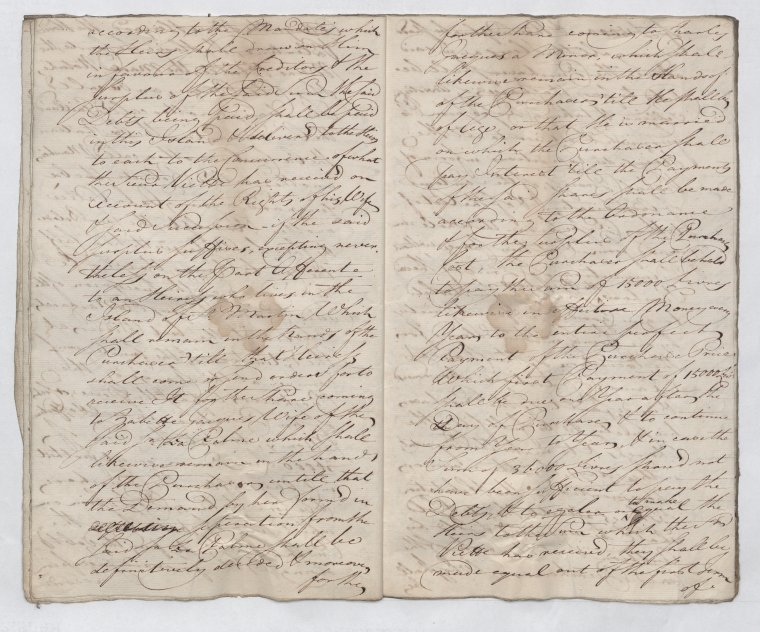 according to the Mandates which
the Heirs shall draw on him
in favour of the Creditors & the
Surplus of the Fund and the said
Debts being paid shall be paid
in this Island & delivered to the Heirs
to each to the concurrence of what
the said Victor has received on
account of the Rights of his Wife
& said Succession if the said
Surplus suffices, excepting never=
theless, on the Part
to an Heiress who lives in the
Island of St Martin Which
shall remain in the hands of the
Purchaser till that Heiress
shall come or send orders for to
receive It for the Share coming
to Babette Wife of the
said La Palme which shall
likewise remain in the hands
of the Purchaser untill that
the Demand by her in
Separation from the
said La Palme shall be
definitively decided & moreover
for the
for the Share coming to Charles
Jacques a Minor, which shall
likewise remain in the Hands of
of the Purchaser till He shall be
of Age, or that He is married
on which the Purchaser shall
pay Interest till the Payments
of the said Shares shall be made
according to the Ordonnance
& for the surplus of the Purchase
the Purchaser shall be held
to pay the sum of 15000 Livres
likewise in effective Money every
Year to the entire & perfect
Payment of the Purchase Price
Which first Payment of 15000
shall be due one Year after the
Day of Purchase & to continue
from Year to Year, & in case the
Sum of 36000 Livres should not
have been sufficient to pay the
Debts, & to make equal the
Heirs to the sum which the
has received, they shall be
made equal out of the first sum
of